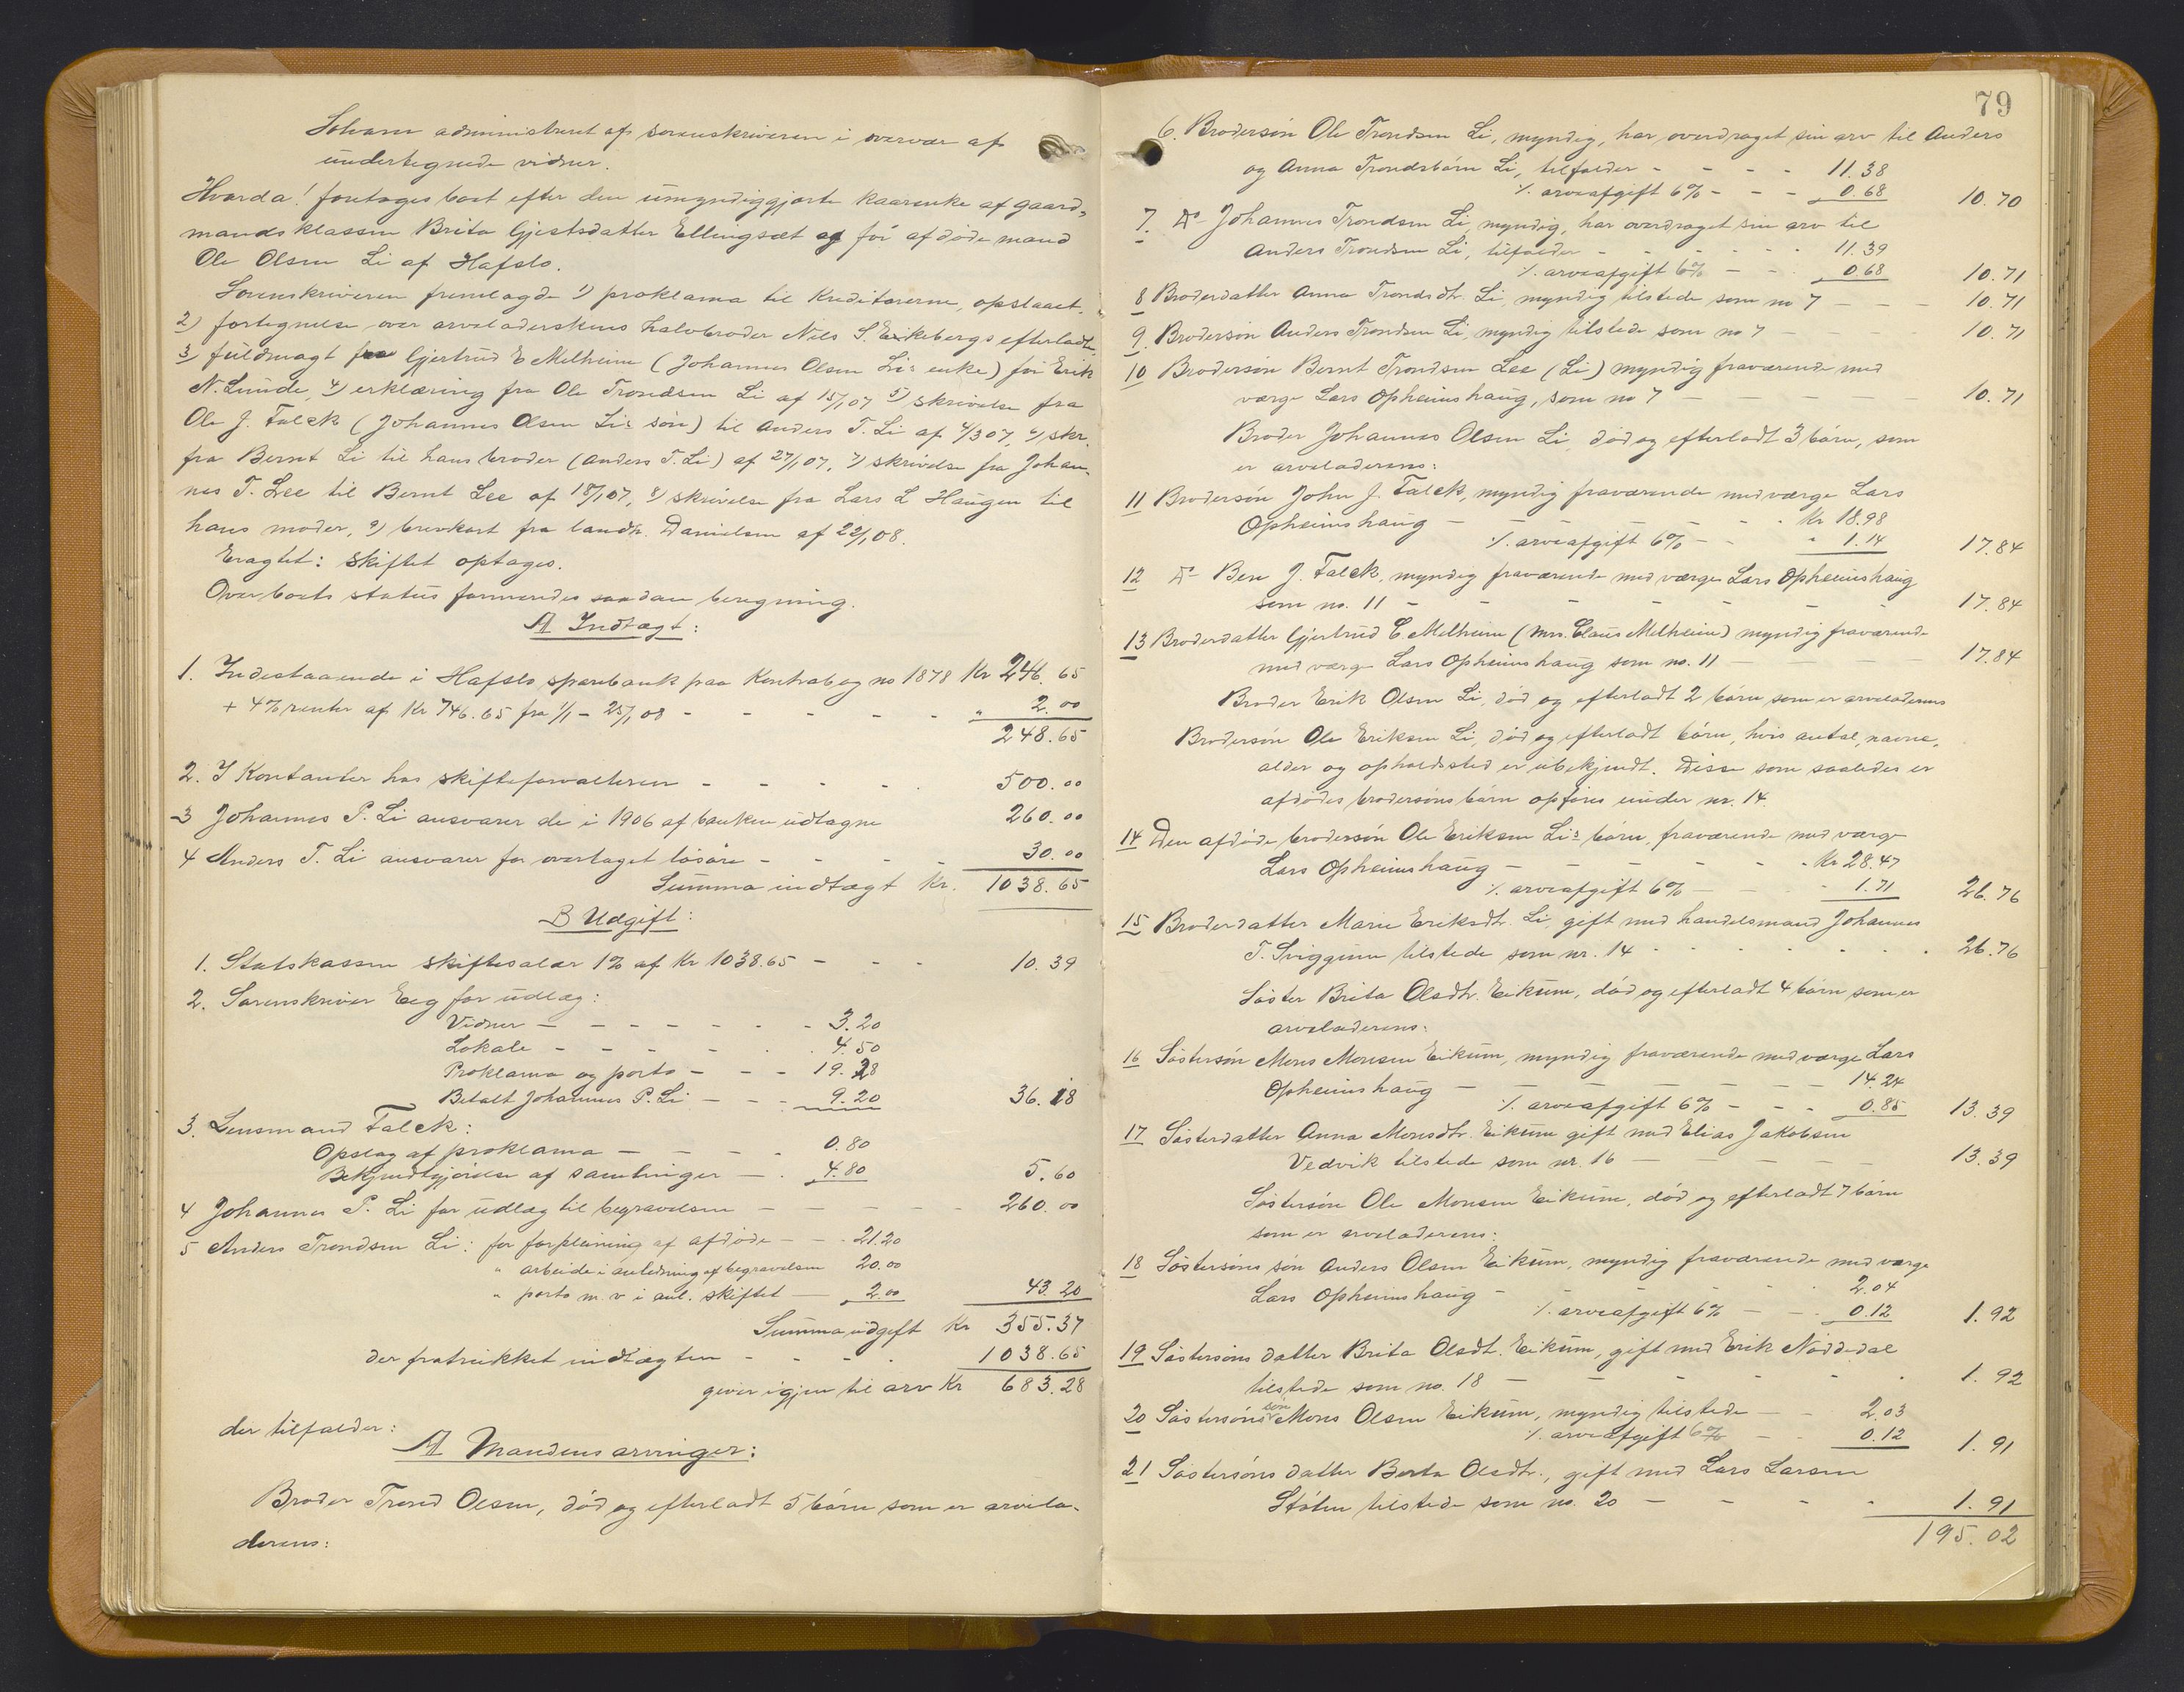 Solvorn administreret af sorenskriveren i overvær af
undertegnede vidner.
Hvorda! foretoges boet efter den umyndiggjorte kaarenke af gaard-
mandsklassen Brita Gjestsdatter Ellingsæt og før afdøde mand
Ole Olsen Li af Hafslo.
Sorenskriveren fremlagde 1) proklama til Kreditorerne, opslaaet.
2) fortegnelse over arveladerskens halvbroder Nils S. Eikebergs efterladte,
3) fuldmagt fra Gjertrud E Melheim (Johannes Olsen Lis enke) for Erik
N. Lunde, 4) erklæring fra Ole Trondsen Li af 15/1 07 5) skrivelse fra
Ole J. Falck (Johannes Olsen Lis søn) til Anders T. Li af 4/3 07, 6) skr.
fra Bernt Li til hans broder (Anders T. Li) af 27/1 07, 7) skrivelse fra Johan-
nes T. Lee til Bernt Lee af 18/1 07, 8) skrivelse fra Lars L Haugen til
hans moder, 9) brevkort fra landh. Danielsen af 22/1 08.
Eragtet: skiftet optages.
Over boets status formeredes saadan beregning.
A Indtægt:
1. Indestaaende i Hafslo sparebank paa Kontrabog no 1878 Kr 246.65
+ 4% renter af Kr 746.65 fra 1/1 - 25/1 08 - - - - - " 2.00
248.65
2. I Kontanter hos skifteforvalteren - - - - 500.00
3 Johannes P. Li ansvarer de i 1906 af banken udtagne 260.00
4 Anders T. Li ansvarer for overtaget løsøre - - - - 30.00
Summa indtægt Kr. 1038.65
B Udgift:
1. Statskassen skiftesalær 1% af Kr 1038.65 - - - 10.39
2. Sorenskriver Eeg for udlæg:
Vidner - - - - - - - 3.20
Lokale - - - - - - 4.50
Proklama og porto - - - 19.28
Betalt Johannes P. Li - - - 9.20 36.18
3. Lensmand Falck:
Opslag af proklama - - - - 0.80
Bekjendtgjørelse af samlinger - - 4.80 5.60
4 Johannes P. Li for udlæg til begravelsen - - - - - 260.00
5 Anders Trondsen Li: for forpleining af afdøde - - - 21.20
" arbeide i anledning af begravelsen 20.00
" porto m. v i anl. skiftet - 2.00 43.20
Summa udgift Kr 355.37
der fratrukket indtægten - - - - 1038.65
giver igjen til arv Kr 683.28
der tilfalder:
A Mandens arvinger:
Broder Trond Olsen, død og efterladt 5 børn som er arvela-
derens:
79
6. Brodersøn Ole Trondsen Li, myndig, har overdraget sin arv til Anders
og Anna Trondsbørn Li, tilfalder - - - - 11.38
% arveafgift 6% - - - 0.68 10.70
7. Do Johannes Trondsen Li, myndig, har overdraget sin arv til
Anders Trondsen Li, tilfalder - - - - - - 11.39
% arveafgift 6% - - 0.68 10.71
8 Broderdatter Anna Trondsdtr. Li, myndig tilstede som no 7 - - - 10.71
9. Brodersøn Anders Trondsen Li, myndig tilstede som no 7 - - - 10.71
10 Brodersøn Bernt Trondsen Lee (Li) myndig fraværende med
værge Lars Opheimshaug, som no 7 - - - - 10.71
Broder Johannes Olsen Li, død og efterladt 3 børn, som
er arveladerens:
11 Brodersøn John J. Falck, myndig fraværende med værge Lars
Opheimshaug - - - - - - - Kr 18.98
% arveafgift 6% - - " 1.14 17.84
12 Do Ben J. Falck, myndig fraværende med værge Lars Opheimshaug
som no. 11 - - - - - - - 17.84
13 Broderdatter Gjertrud C. Melheim (Mrs. Claus Melheim) myndig fraværende
med værge Lars Opheimshaug som no. 11 - - - - 17.84
Broder Erik Olsen Li, død og efterladt 2 børn som er arveladerens
Brodersøn Ole Eriksen Li, død og efterladt børn, hvis antal, navne,
alder og opholdssted er ubekjendt. Disse som saaledes er
afdødes brodersøns børn opføres under nr. 14.
14 Den afdøde brodersøn Ole Eriksen Lis børn, fraværende med værge
Lars Opheimshaug - - - - - - Kr 28.47
% arveafgift 6% - - - 1.71 26.76
15 Broderdatter Marie Eriksdtr. Li, gift med handelsmand Johannes
T. Sviggum tilstede som nr. 14 - - - - - - 26.76
Søster Brita Olsdtr. Eikum, død og efterladt 4 børn som er
arveladerens:
16 Søstersøn Mons Monsen Eikum, myndig fraværende med værge Lars
Opheimshaug - - - - - - - 14.24
% arveafgift 6% - - - 0.85 13.39
17 Søsterdatter Anna Monsdtr. Eikum gift med Elias Jakobsen
Vedvik tilstede som nr. 16 - - - - - 13.39
Søstersøn Ole Monsen Eikum, død og efterladt 7 børn
som er arveladerens:
18 Søstersøns søn Anders Olsen Eikum, myndig fraværende med værge
Lars Opheimshaug - - - - - - 2.04
% arveafgift 6% - - 0.12 1.92
19 Søstersøns datter Brita Olsdt. Eikum, gift med Erik Nøddedal
tilstede som no. 18 - - - - - - 1.92
20 Søstersøns søn Mons Olsen Eikum, myndig tilstede - - 2.03
% arveafgift 6% - - 0.12 1.91
21 Søstersøns datter Berta Olsdtr., gift med Lars Larsen
Stølen tilstede som no. 20 - - - - 1.91
195.02